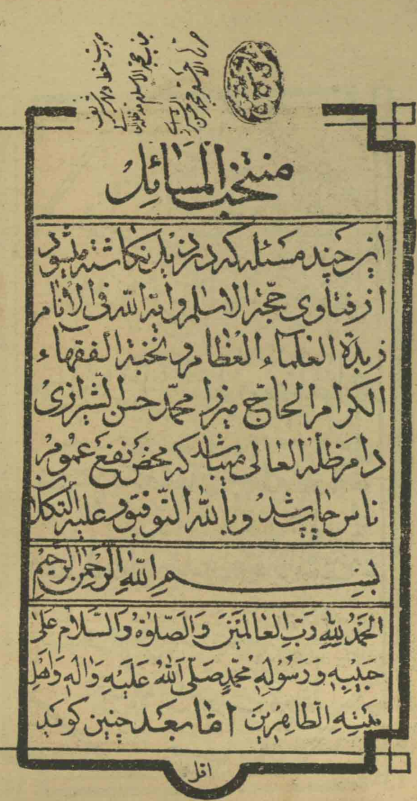 منتخب المسائل
این چند مسئله که در ذیل نگاشته میشود
از فتاوی حجّة الاسلام وایة الله فی الانام
زبدة العلماء العظام و نخبة الفقهاء
الکرام الحاج میرزا محمّد حسن الشّیرازی
دام ظلّه العالی میباشد که محض نفع عموم
ناس چاپ شد وبالله التّوفیق و علیه التکلان
بسم الله الرّحمن الرّحیم
الحمد لله ربّ العالمین والصّلوة والسّلام علی
حبیبه ورسوله محمّد صلّی الله علیه واله واهل
بیته الطاهرین امّا بعد چنین کوید
اقل